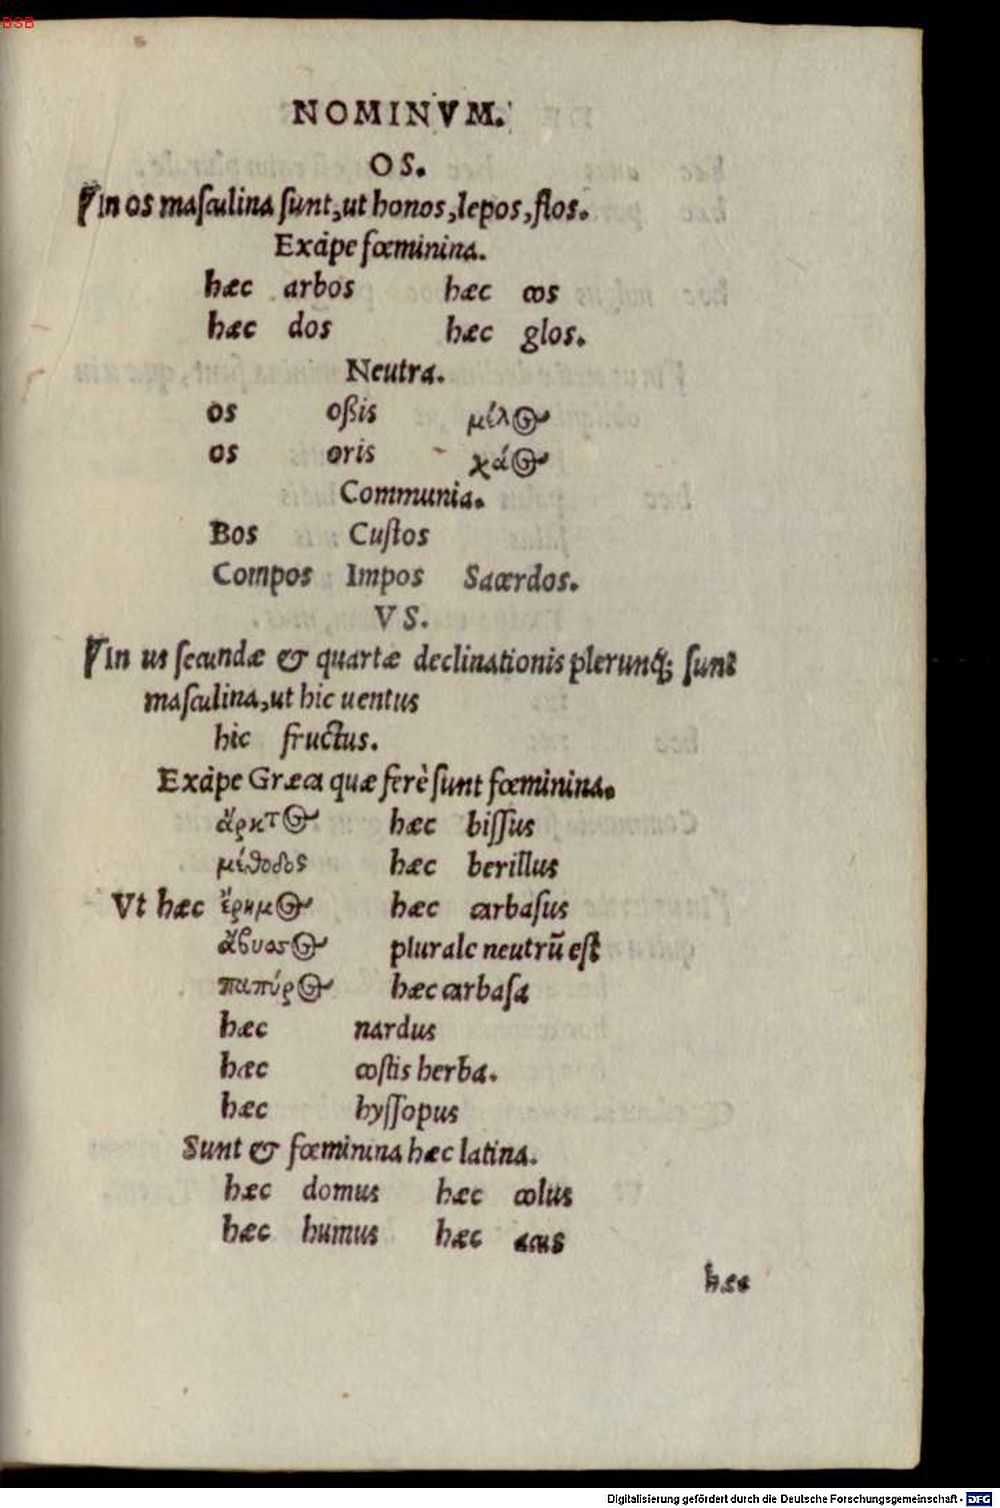 BSB
NOMINVM.
OS.
¶In os masculina sunt, ut honos, lepos, flos.
Exāpe fœminina.
hæc arbos hæc cos
hæc dos hæc glos.
Neutra.
os oßis μέλος
os oris χάος
Communia.
Bos Custos
Compos Impos Sacerdos.
VS.
¶In us secundæ & quartæ declinationis plerunq; sunt
masculina, ut hic uentus
hic fructus.
Exāpe Græca quæ ferè sunt fœminina.
ἄρκτος hæc bissus
μέθοδος hæc berillus
Vt hæc ἔρημος hæc carbasus
ἄβυσσος plurale neutrū est
παπύρος hæc carbasa
hæc nardus
hæc costis herba.
hæc hyssopus
Sunt & fœminina hæc latina.
hæc domus hæc colus
hæc humus hæc acus
hæc
Digitalisierung gefördert durch die Deutsche Forschungsgemeinschaft - DFG